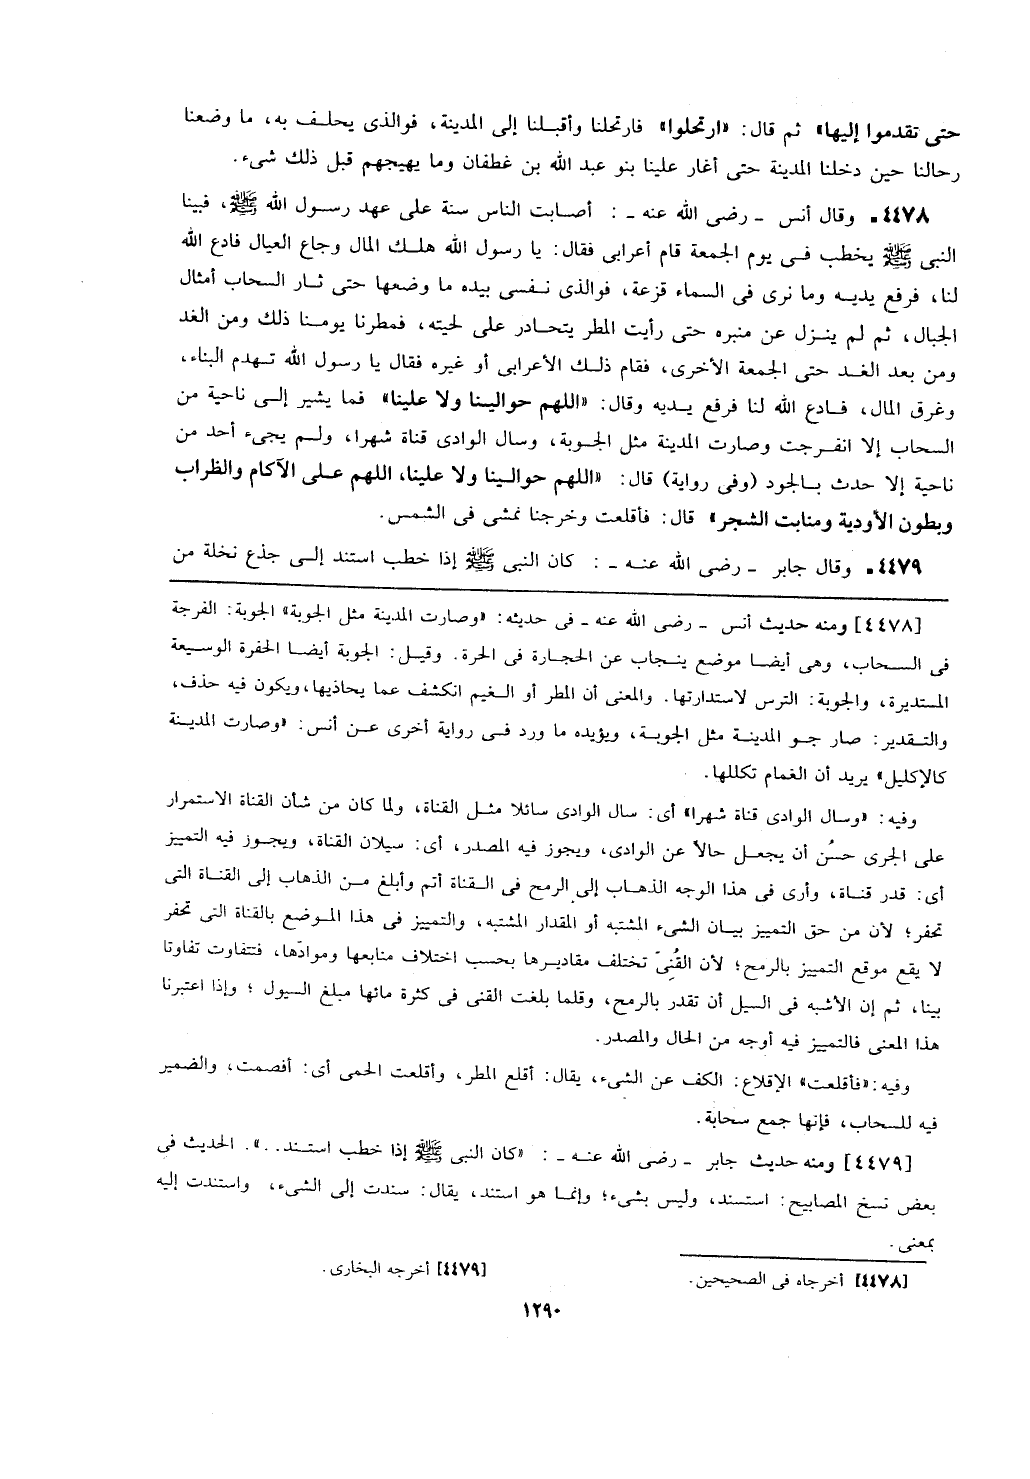 حتى تقدموا إليها» ثم قال: «ارتحلوا» فارتحلنا وأقبلنا إلى المدينة، فوالذى يحلف به، ما وضعنا
رحالنا حين دخلنا المدينة حتى أغار علينا بنو عبد الله بن غطفان وما يهيجهم قبل ذلك شىء.
٤٤٧٨. وقال أنس ـ رضى الله عنه ـ : أصابت الناس سنة على عهد رسول الله ﷺ، فبينا
النبى ﷺ يخطب فى يوم الجمعة قام أعرابى فقال: يا رسول الله هلك المال وجاع العيال فادع الله
لنا، فرفع يديه وما نرى فى السماء قزعة، فوالذى نفسى بيده ما وضعها حتى ثار السحاب أمثال
الجبال، ثم لم ينزل عن منبره حتى رأيت المطر يتحادر على لحيته، فمطرنا يومنا ذلك ومن الغد
ومن بعد الغد حتى الجمعة الأخرى، فقام ذلك الأعرابى أو غيره فقال يا رسول الله تهدم البناء،
وغرق المال، فادع الله لنا فرفع يديه وقال: «اللهم حوالينا ولا علينا» فما يشير إلى ناحية من
السحاب إلا انفرجت وصارت المدينة مثل الجوبة، وسال الوادى قناة شهرا، ولم يجىء أحد من
ناحية إلا حدث بالجود (وفى رواية) قال: «اللهم حوالينا ولا علينا، اللهم على الآكام والظراب
وبطون الأودية ومنابت الشجر» قال: فأقلعت وخرجنا نمشى فى الشمس.
٤٤٧٩. وقال جابر ـ رضى الله عنه ـ : كان النبى ﷺ إذا خطب استند إلى جذع نخلة من
[٤٤٧٨] ومنه حديث أنس ـ رضى الله عنه ـ فى حديثه: «وصارت المدينة مثل الجوبة» الجوبة: الفرجة
فى السحاب، وهى أيضا موضع ينجاب عن الحجارة فى الحرة. وقيل: الجوبة أيضا الحفرة الوسيعة
المستديرة، والجوبة: الترس لاستدارتها. والمعنى أن المطر أو الغيم انكشف عما يحاذيها، ويكون فيه حذف،
والتقدير: صار جو المدينة مثل الجوبة، ويؤيده ما ورد فى رواية أخرى عن أنس: «وصارت المدينة
كالإكليل» يريد أن الغمام تكللها.
وفيه: «وسال الوادى قناة شهرا» أى: سال الوادى سائلا مثل القناة، ولما كان من شأن القناة الاستمرار
على الجرى حسُن أن يجعل حالاً عن الوادى، ويجوز فيه المصدر، أى: سيلان القناة، ويجوز فيه التمييز
أى: قدر قناة، وأرى فى هذا الوجه الذهاب إلى الرمح فى القناة أتم وأبلغ من الذهاب إلى القناة التى
تحفر؛ لأن من حق التمييز بيان الشىء المشتبه أو المقدار المشتبه، والتمييز فى هذا الموضع بالقناة التى تحفر
لا يقع موقع التمييز بالرمح؛ لأن القُنِىّ تختلف مقاديرها بحسب اختلاف منابعها وموادّها، فتتفاوت تفاوتا
بينا، ثم إن الأشبه فى السيل أن تقدر بالرمح، وقلما بلغت القنى فى كثرة مائها مبلغ السيول ؛ وإذا اعتبرنا
هذا المعنى فالتمييز فيه أوجه من الحال والمصدر.
وفيه: «فأقلعت» الإقلاع: الكف عن الشىء، يقال: أقلع المطر، وأقلعت الحمى أى: أفصمت، والضمير
فيه للسحاب، فإنها جمع سحابة.
[٤٤٧٩] ومنه حديث جابر ـ رضى الله عنه ـ : «كان النبى ﷺ إذا خطب استند...». الحديث فى
بعض نسخ المصابيح: استسند، وليس بشىء؛ وإنما هو استند، يقال: سندت إلى الشىء، واستندت إليه
بمعنى.
[٤٤٧٨] أخرجاه فى الصحيحين. [٤٤٧٩] أخرجه البخارى.
١٢٩٠